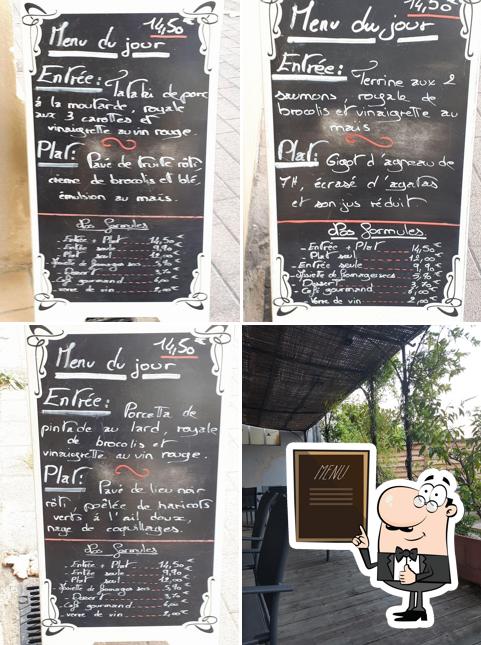 14,50€
Menu du jour
Entrée: Tataki de porc
à la moutarde, royale
aux 3 carottes et
vinaigrette au vin rouge.
Plat: Pavé de truite rôti
crème de brocolis et blé,
émulsion au maïs.
Nos formules
- Entrée + Plat 14,50€
- Entrée seule 9,90€
Plat seul 12,00€
Assiette de fromages secs 5,90€
Dessert 3,70€
Café gourmand 6,00€
verre de vin 2,00€
14,50€
Menu du jour
Entrée: Terrine aux 2
saumons, royale de
brocolis et vinaigrette au
maïs
Plat: Gigot d'agneau de
7H, écrasé d'agatas
et son jus réduit
Nos formules
- Entrée + Plat 14,50€
Plat seul 12,00€
- Entrée seule 9,90€
- Assiette de fromages secs 5,90€
Dessert 3,70€
- Café gourmand 6,00€
Verre de vin 2,00€
14,50€
Menu du jour
Entrée: Porcetta de
pintade au lard, royale
de brocolis et
vinaigrette au vin rouge.
Plat: Pavé de lieu noir
rôti, poêlée de haricots
verts à l'ail doux,
nage de coquillages.
Nos formules
- Entrée + Plat 14,50€
- Entrée seule 9,90€
- Plat seul 12,00€
Assiette de fromages secs 5,90€
- Dessert 3,70€
- Café gourmand 6,00€
- verre de vin 2,00€
MENU